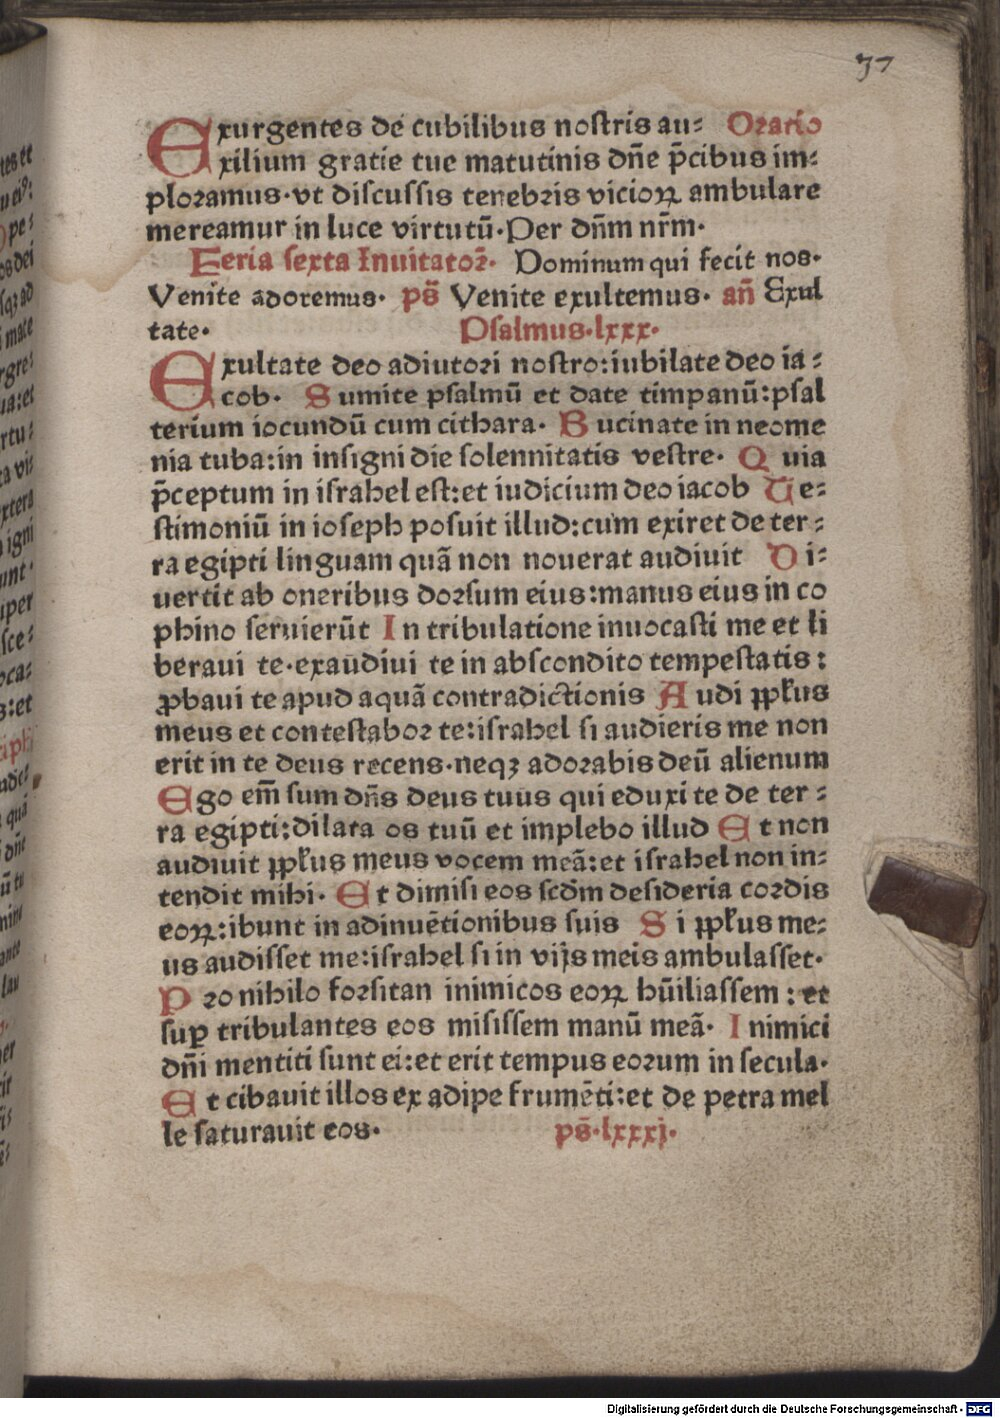 37
Exurgentes de cubilibus nostris au: Oratio
xilium gratie tue matutinis dn̄e p̄cibus im:
ploramus·vt discussis tenebris vicioꝝ ambulare
mereamur in luce virtutū·Per dn̄m nr̄m·
Feria sexta Inuitator̄· Dominum qui fecit nos·
Venite adoremus· ps̄ Venite exultemus· an̄ Exul
tate· Psalmus·lxxx·
Exultate deo adiutori nostro:iubilate deo ia:
cob· Sumite psalmū et date timpanū:psal
terium iocundū cum cithara· Bucinate in neome
nia tuba:in insigni die solennitatis vestre· Quia
p̄ceptum in israhel est:et iudicium deo iacob Te:
stimoniū in ioseph posuit illud:cum exiret de ter:
ra egipti linguam quā non nouerat audiuit Di:
uertit ab oneribus dorsum eius:manus eius in co
phino seruierūt In tribulatione inuocasti me et li
beraui te·exaudiui te in abscondito tempestatis:
ꝓbaui te apud aquā contradictionis Audi ppl̄us
meus et contestabor te:israhel si audieris me non
erit in te deus recens·neqꝫ adorabis deū alienum
Ego em̄ sum dn̄s deus tuus qui eduxi te de ter:
ra egipti:dilata os tuū et implebo illud Et non
audiuit ppl̄us meus vocem meā:et israhel non in:
tendit mihi· Et dimisi eos scd̄m desideria cordis
eoꝝ:ibunt in adinuētionibus suis Si ppl̄us me:
us audisset me:israhel si in vijs meis ambulasset·
Pro nihilo forsitan inimicos eoꝝ hūiliassem:et
suꝑ tribulantes eos misissem manū meā· Inimici
dn̄i mentiti sunt ei:et erit tempus eorum in secula·
Et cibauit illos ex adipe frumēti:et de petra mel
le saturauit eos· ps̄·lxxxj·
Digitalisierung gefördert durch die Deutsche Forschungsgemeinschaft - DFG